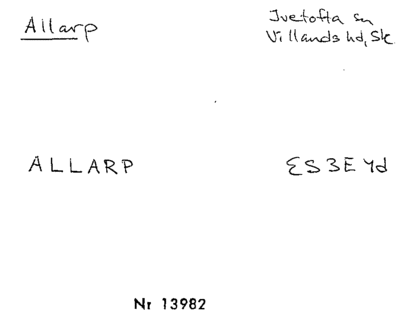 Allarp
Ivetofta sn
Villands hd, Sk.
ALLARP
ES3E Yd
Nr 13982